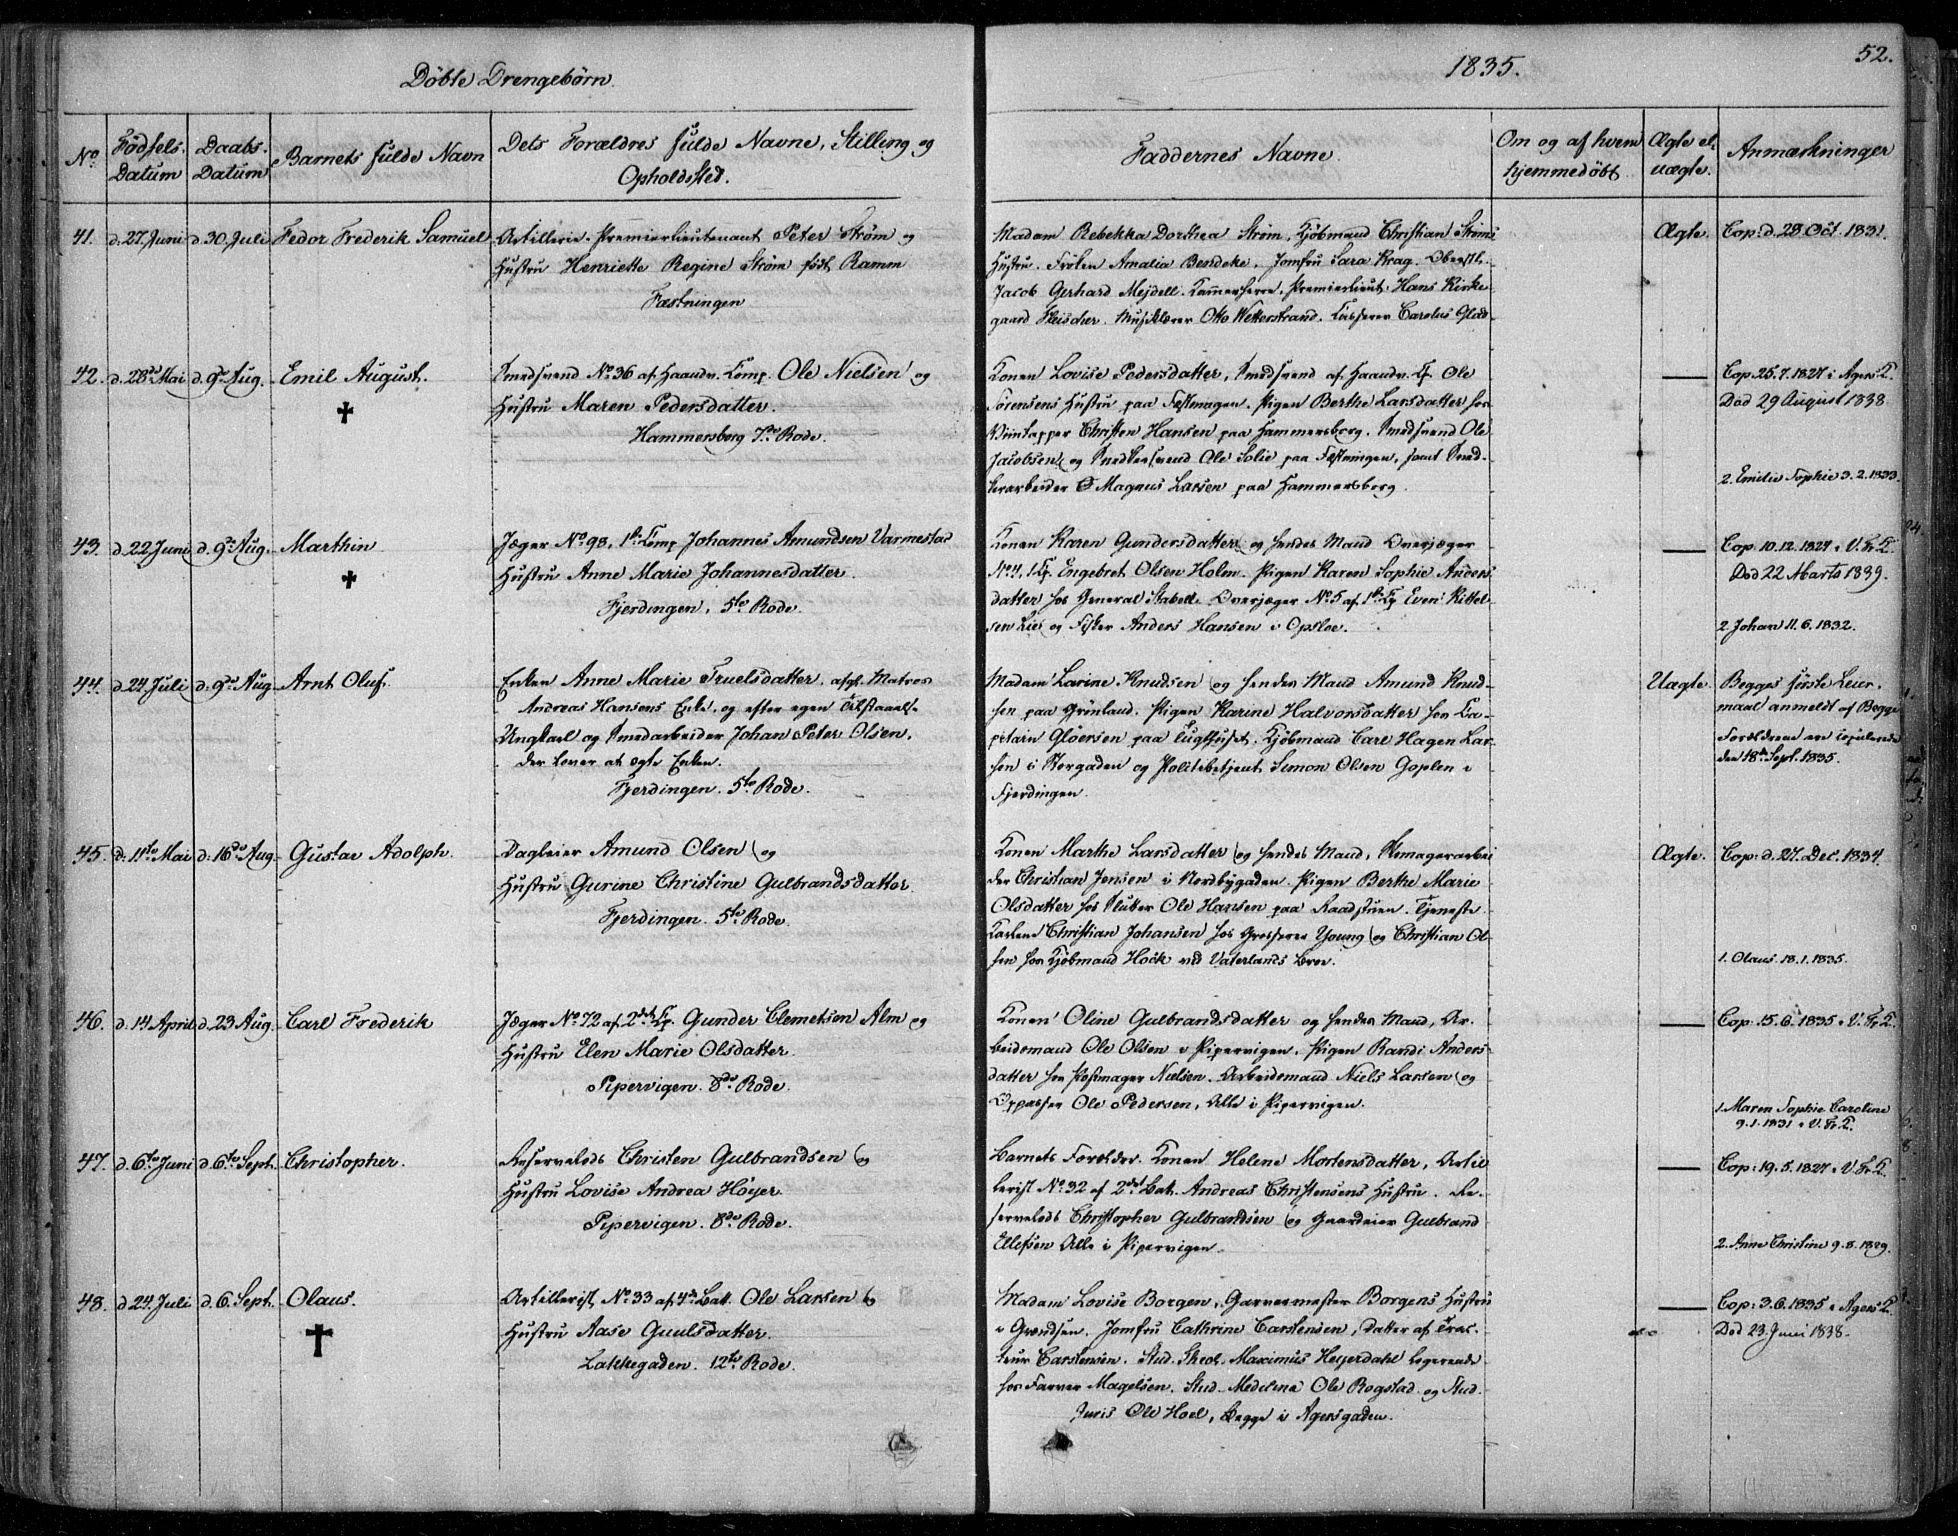 Döbte Drengebörn.
1835.
52.
No
Födsels-Datum
Daabs-Datum
Barnets fulde Navn
Dets Forældres fulde Navne, Stilling og Opholdsted.
Faddernes Navne.
Om og af hvem hjemmedöbt
Ægte el. uægte.
Anmærkninger
41. d. 27. Juni d. 30. Juli Fedor Frederik Samuel
Artillerie-Premierlieutenant Peter Strøm og
Hustru Henriette Regine Strøm født Ramm
Fæstningen
Madam Rebekka Dorthea Strøm, Kjöbmand Christian Strøms
Hustru. Frøken Amalia Bendeke. Jomfru Sara Krag. Oberstl.
Jacob Gerhard Mejdell. Kammerherre. Premierlieut. Hans Kirke-
gaard Fleischer. Musiklærer Otto Wetterstrand. Kasserer Carolus Glad-
Ægte.
Cop: d. 28 Oct. 1831.
42. d. 28de Mai d. 9de Aug. Emil August.
Smedsvend No 36 af Haandv. Komp. Ole Nielsen og
Hustru Maren Pedersdatter.
Hammersborg 7de Rode.
Konen Lovise Pedersdatter, Smedsvend af Haandv. Kp. Ole
Sørensens Hustru paa Fæstningen. Pigen Berthe Larsdatter hos
Viintapper Christen Hansen paa Hammersborg. Smedsvend Ole
Jacobsen og Snedkersvend Ole Solie paa Fæstningen, samt Smed-
kerarbeider Magnus Larsen paa Hammersborg.
Cop. 25.7.1827 i Agers K.
Död 29 August 1838.
2. Emilie Sophie 3.2.1833.
43. d. 22 Juni d. 9de Aug. Marthin
Jæger No 98, 1ste Komp Johannes Amundsen Varmestad
Hustru Anne Marie Johannesdatter.
Fjerdingen, 5te Rode.
Konen Karen Gundersdatter og hendes Mand Overjæger
No 4, 1. Kp. Engebret Olsen Holm. Pigen Karen Sophie Anders-
datter hos General Stabell. Overjæger No 5 af 1ste Kp Even Kittel-
sen Lie og Fisker Anders Hansen i Opsloe.
Cop. 10.12.1827 i V. Fr. K.
Död 22 Marts 1839.
2. Johan 11.6.1832.
44. d. 24 Juli d. 9de Aug. Arnt Oluf.
Enken Anne Marie Truelsdatter, afg. Matros
Andreas Hansens Enke, og efter egen Tilstaaelse
Ungkarl og Smedarbeider Johan Peter Olsen,
der lover at ægte Enken.
Fjerdingen. 5te Rode.
Madam Larine Knudsen og hendes Mand Amund Knud-
sen paa Grönland. Pigen Karine Halvorsdatter hos Ca-
pitain Glöersen paa Tugthuset. Kjöbmand Carl Hagen Lar-
sen i Storgaden og Politibetjent Simon Olsen Goplen i
Fjerdingen.
Uægte.
Begges förste Leier-
maal anmeldt af Begge
Forældrene ere copulerede
den 18de Sept. 1835.
45. d. 11te Mai d. 16de Aug. Gustav Adolph.
Dagleier Amund Olsen og
Hustru Gurine Christine Gulbrandsdatter
Fjerdingen. 5te Rode.
Konen Marthe Larsdatter og hendes Mand, Skomagerarbei-
der Christian Jensen i Nordbygaden. Pigen Berthe Marie
Olsdatter hos Slutter Ole Hansen paa Raadstuen. Tjeneste-
Karlene Christian Johansen hos Grosserer Young og Christian Ol-
sen hos Kjöbmand Hoëk ved Vaterlands Broe.
Ægte.
Cop: d. 27. Dec. 1834.
1. Olaus 18.1.1835.
46. d. 14 April d. 23 Aug. Carl Frederik
Jæger No 72 af 2det Kp. Gunder Clemetsen Alm og
Hustru Elen Marie Olsdatter.
Pipervigen. 8de Rode.
Konen Oline Gulbrandsdatter og hendes Mand, Ar-
beidsmand Ole Olsen i Pipervigen. Pigen Randi Anders-
datter hos Postmager Nielsen. Arbeidsmand Niels Larsen og
Oppasser Ole Pedersen, Alle i Pipervigen.
Cop. 15.6.1835 i V. Fr. K.
1. Maren Sophie Caroline
9.1.1831 i V. Fr. K.
47. d. 6te Juni d. 6te Sept. Christopher.
Reservelods Christen Gulbrandsen og
Hustru Lovise Andrea Höyer
Pipervigen. 8de Rode.
Barnets Forældre. Konen Helene Mortensdatter, Artil-
lerist No 32 af 2det Bat. Andreas Christensens Hustru. Re-
servelods Christopher Gulbrandsen og Gaardeier Gulbrand
Ellefsen Alle i Pipervigen.
Cop: 19.5.1827 i V. Fr. K.
2. Anne Christine 9.8.1829.
48. d 24. Juli d. 6. Sept. Olaus.
Artillerist No 33 af 4de Batt. Ole Larsen og
Hustru Aase Guulsdatter.
Lakkegaden. 12te Rode.
Madam Lovise Borgen, Garvermester Borgens Hustru
i Grændsen. Jomfru Cathrine Carstensen, Datter af Trac-
teur Carstensen. Stud. Theol. Maximus Heyerdahl logerende
hos Farver Magelsen. Stud. Medicinæ Ole Rogstad og Stud.
Juris Ole Hoel, Begge i Agersgaden.
Cop: 3.6.1835 i Agers K.
Död 23. Juni 1838.